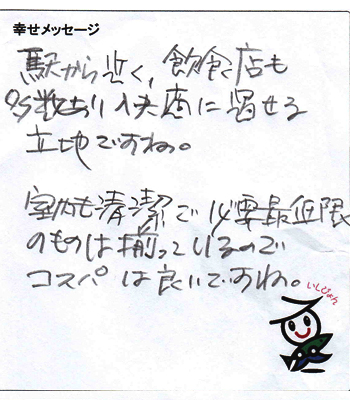 幸せメッセージ
駅から近く、飲食店も
多数あり快適に過せる
立地ですね。
室内も清潔で必要最低限
のものは揃っているので
コスパは良いですね。
いしぴょん